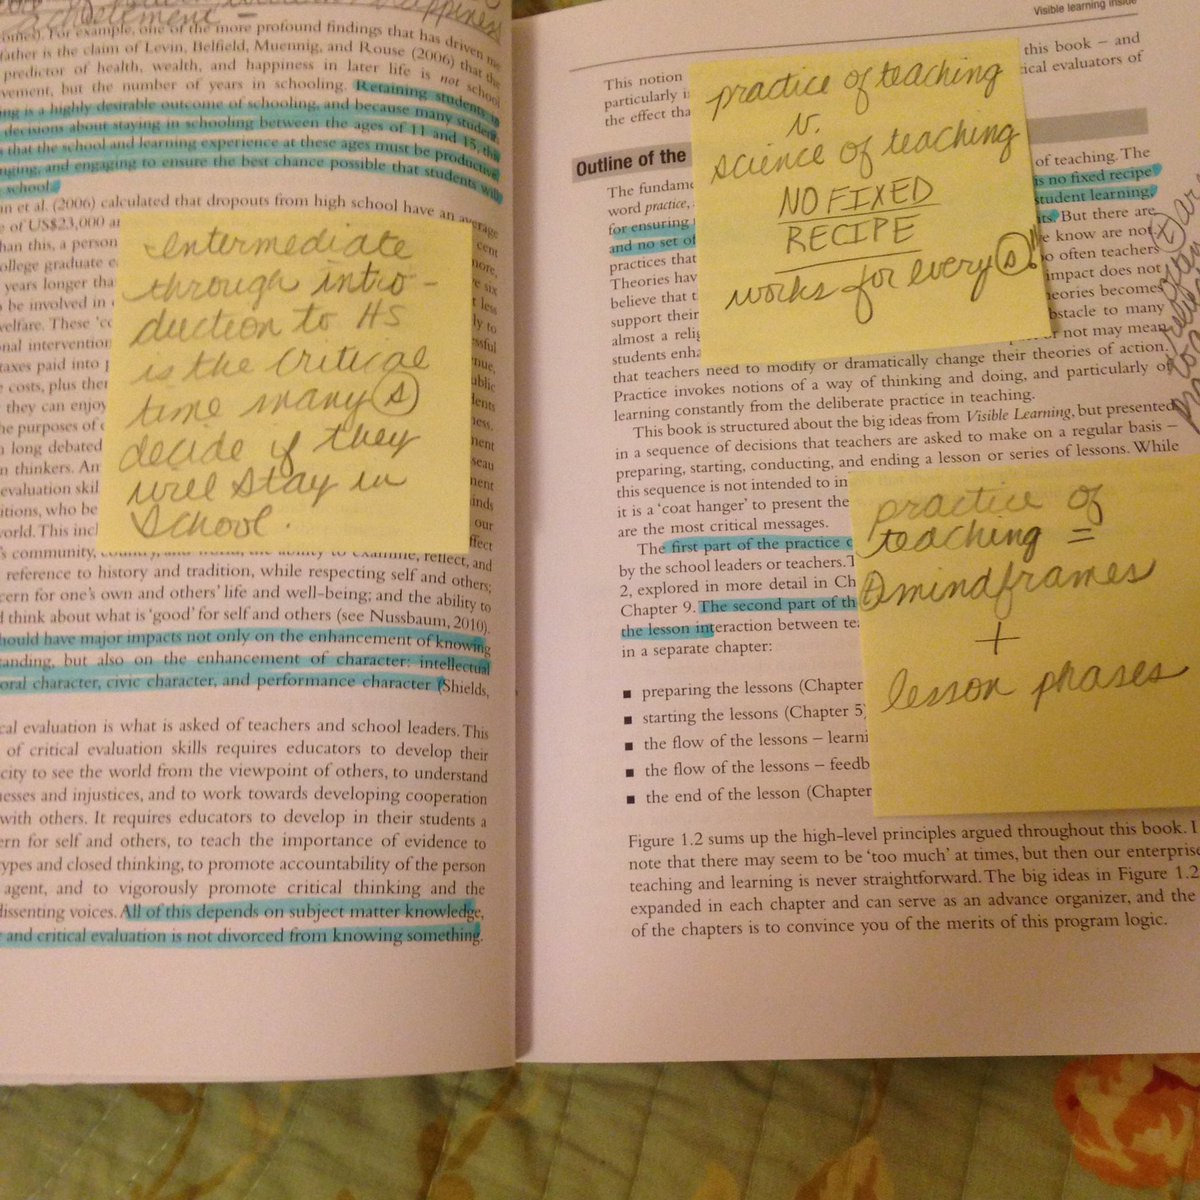 achievement = happiness
comes). For example, one of the more profound findings that has driven me
father is the claim of Levin, Belfield, Muennig, and Rouse (2006) that the
predictor of health, wealth, and happiness in later life is not school
vement, but the number of years in schooling. Retaining students in
ing is a highly desirable outcome of schooling, and because many student
decisions about staying in schooling between the ages of 11 and 15, this
s that the school and learning experience at these ages must be productive,
nging, and engaging to ensure the best chance possible that students will
school.
in et al. (2006) calculated that dropouts from high school have an average
e of US$23,000
han this, a person cent
ollege graduate more,
years longer than six
o be involved in less
welfare. These ly to
onal intervention ssful
taxes paid into nue,
e costs, plus ublic
they can enjoy dents
he purposes of ness.
n long debated ment
n thinkers. An seau
evaluation skil ment
itions, who be ands
world. This incl our
Intermediate
through intro-
duction to HS
is the critical
time many s
decide if they
will stay in
school.
's community, country, and world, the ability to examine, reflect, and
reference to history and tradition, while respecting self and others;
cern for one's own and others' life and well-being; and the ability to
d think about what is 'good' for self and others (see Nussbaum, 2010).
hould have major impacts not only on the enhancement of knowing
tanding, but also on the enhancement of character: intellectual
oral character, civic character, and performance character (Shields,
cal evaluation is what is asked of teachers and school leaders. This
of critical evaluation skills requires educators to develop their
city to see the world from the viewpoint of others, to understand
nesses and injustices, and to work towards developing cooperation
with others. It requires educators to develop in their students a
ern for self and others, to teach the importance of evidence to
types and closed thinking, to promote accountability of the person
agent, and to vigorously promote critical thinking and the
dissenting voices. All of this depends on subject matter knowledge,
and critical evaluation is not divorced from knowing something.
Visible learning inside
This notion this book – and
particularly ical evaluators of
the effect tha
practice of teaching
v.
science of teaching
NO FIXED
RECIPE
works for every s!!
Outline of the
The fundame of teaching. The
word practice, is no fixed recipe
for ensuring student learning,
and no set of But there are
practices that e know are not
Theories hav oo often teachers
believe that t impact does not
support their eories becomes
almost a relig bstacle to many
students enha or not may mean
that teachers need to modify or dramatically change their theories of action.
Practice invokes notions of a way of thinking and doing, and particularly of
learning constantly from the deliberate practice in teaching.
This book is structured about the big ideas from Visible Learning, but presented
in a sequence of decisions that teachers are asked to make on a regular basis –
preparing, starting, conducting, and ending a lesson or series of lessons. While
this sequence is not intended to in
it is a 'coat hanger' to present the
are the most critical messages.
The first part of the practice
by the school leaders or teachers. T
2, explored in more detail in Ch
Chapter 9. The second part of th
the lesson interaction between tea
in a separate chapter:
practice of
teaching =
mindframes
+
lesson phases
■ preparing the lessons (Chapter
■ starting the lessons (Chapter 5)
■ the flow of the lessons – learni
■ the flow of the lessons – feedb
■ the end of the lesson (Chapter
Figure 1.2 sums up the high-level principles argued throughout this book. I
note that there may seem to be 'too much' at times, but then our enterprise
teaching and learning is never straightforward. The big ideas in Figure 1.2
expanded in each chapter and can serve as an advance organizer, and the
of the chapters is to convince you of the merits of this program logic.